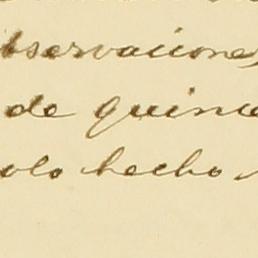 bservaciones
de quince
olo hecho